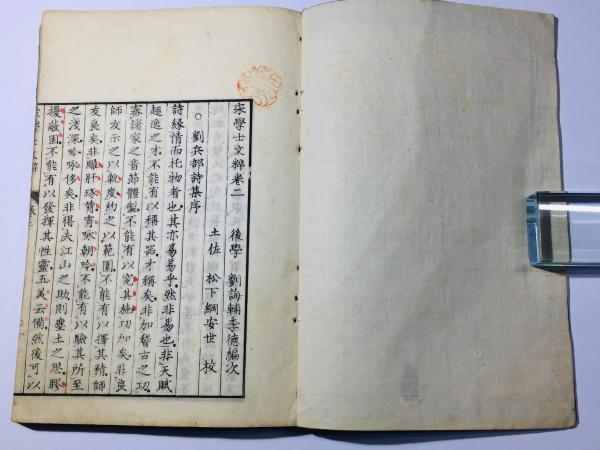 宋學士文粹卷二　後學　劉誨輔季德編次
土佐　松下綱安世　校
○劉兵部詩集序
詩緣情而托物者也其亦易易乎然非易也非天賦
超逸之才不能有以稱其器才稱矣非加稽古之功
審諸家之音節體製不能有以究其施功加矣非良
師友示之以軌度約之以範圍不能有以擇其精師
友良矣非雕肝琢膂宵咏朝吟不能有以驗其所至
之淺深吟咏侈矣非得夫江山之助則塵土之思膠
擾蔽固不能有以發揮其性靈五美云備然後可以